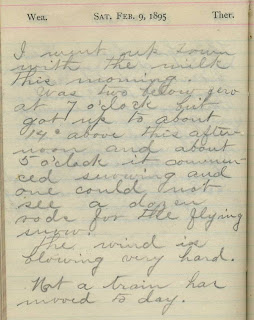 Wea. SAT. FEB. 9, 1895 Ther.
I went up town
with the milk
this morning.
Was two below zero
at 7 o'clock but
got up to about
14° above this after-
noon and about
5 o'clock it commen-
ced snowing and
one could not
see a dozen
rods for the flying
snow.
The wind is
blowing very hard.
Not a train has
moved to day.